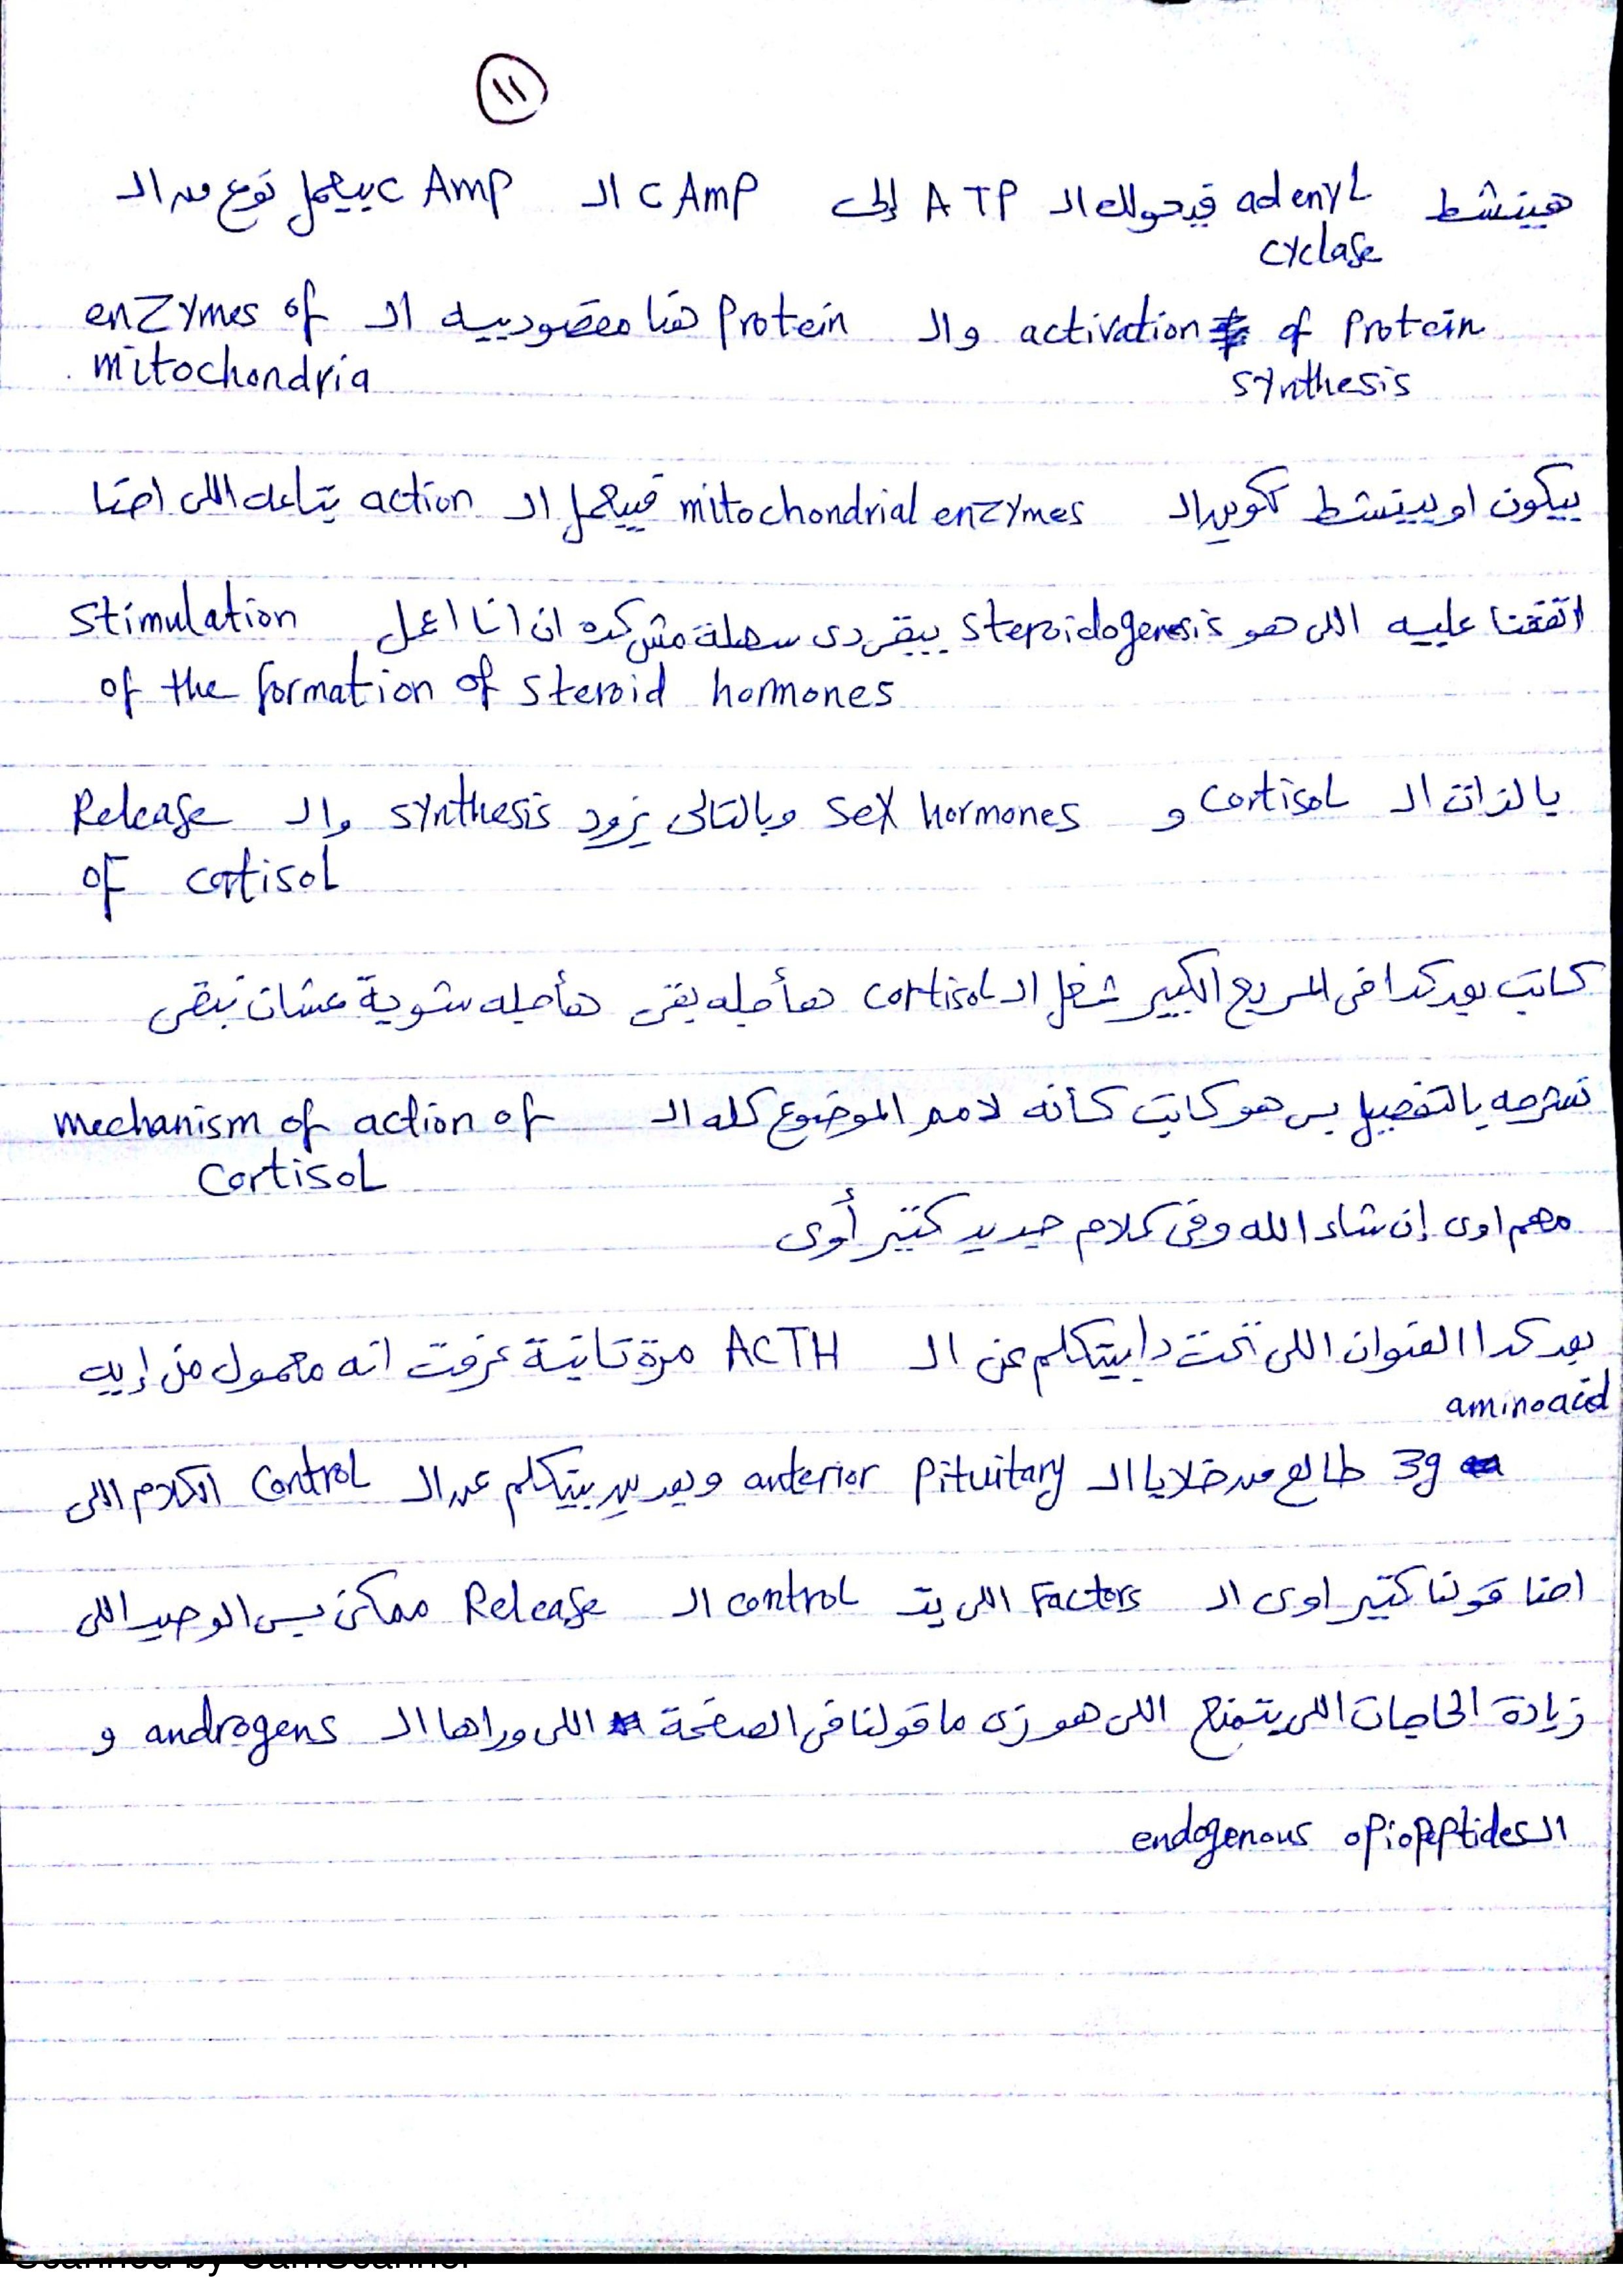 ١١
هينشط adenyl cyclase فيحولك الـ ATP إلى cAmp الـ cAmp بيعمل نوع من الـ
activation of Protein synthesis والـ Protein هنا مقصود بيه الـ enzymes of mitochondria
بيكون او بينشط تكوين الـ mitochondrial enzymes فيعمل الـ action بتاعه اللى احنا
اتفقنا عليه اللى هو steroidogenesis يبقى دى سهلة مش كده ان انا اعمل stimulation of the formation of steroid hormones
بالذات الـ cortisol و sex hormones وبالتالى يزود synthesis والـ Release of cortisol
كاتب بعد كدا فى المربع الكبير شغل الـ cortisol هنأجله بقى هنأجله شوية عشان نبقى
نشرحه بالتفصيل بس هو كاتب كأنه لامم الموضوع كله الـ mechanism of action of cortisol
مهم اوى إن شاء الله وفى كلام جديد كتير أوى
بعد كدا العنوان اللى تحت دا بيتكلم عن الـ ACTH مرة تانية عرفت انه معمول من إيه
aminoacid
39 طالع من خلايا الـ anterior Pituitary وبعدين بيتكلم عن الـ control الكلام اللى
احنا قولنا كتير اوى الـ Factors اللى بتـ control الـ Release ممكن بس الوحيد اللى
زيادة الحاجات اللى بتمنع اللى هو زى ما قولنا فى الصفحة اللى وراها الـ androgens و
الـ endogenous opiopeptides
Scanned by CamScanner